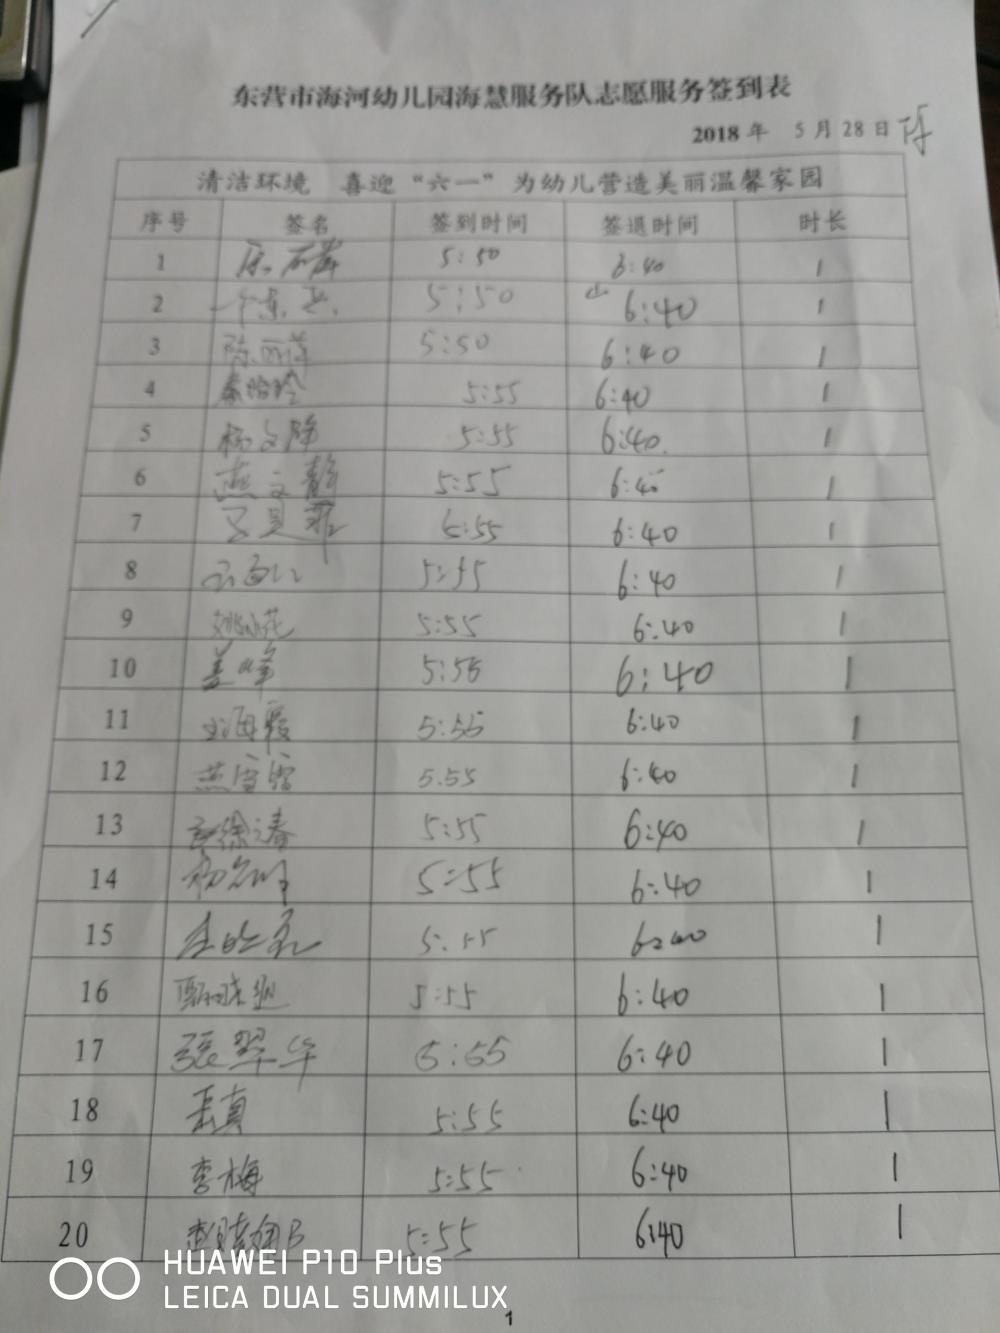 东营市海河幼儿园海慧服务队志愿服务签到表
2018 年 5 月 28 日
清洁环境 喜迎“六一”为幼儿营造美丽温馨家园
序号 签名 签到时间 签退时间 时长
1 5:50 6:40 1
2 5:50 6:40 1
3 5:50 6:40 1
4 5:55 6:40 1
5 杨文静 5:55 6:40 1
6 燕文静 5:55 6:40 1
7 5:55 6:40 1
8 5:55 6:40 1
9 5:55 6:40 1
10 姜峰 5:55 6:40 1
11 海霞 5:55 6:40 1
12 燕雪 5.55 6:40 1
13 徐 春 5:55 6:40 1
14 5:55 6:40 1
15 5:55 6:40 1
16 5:55 6:40 1
17 张翠华 5:55 6:40 1
18 岳真 5:55 6:40 1
19 李梅 5:55 6:40 1
20 5:55 6:40 1
HUAWEI P10 Plus
LEICA DUAL SUMMILUX
1